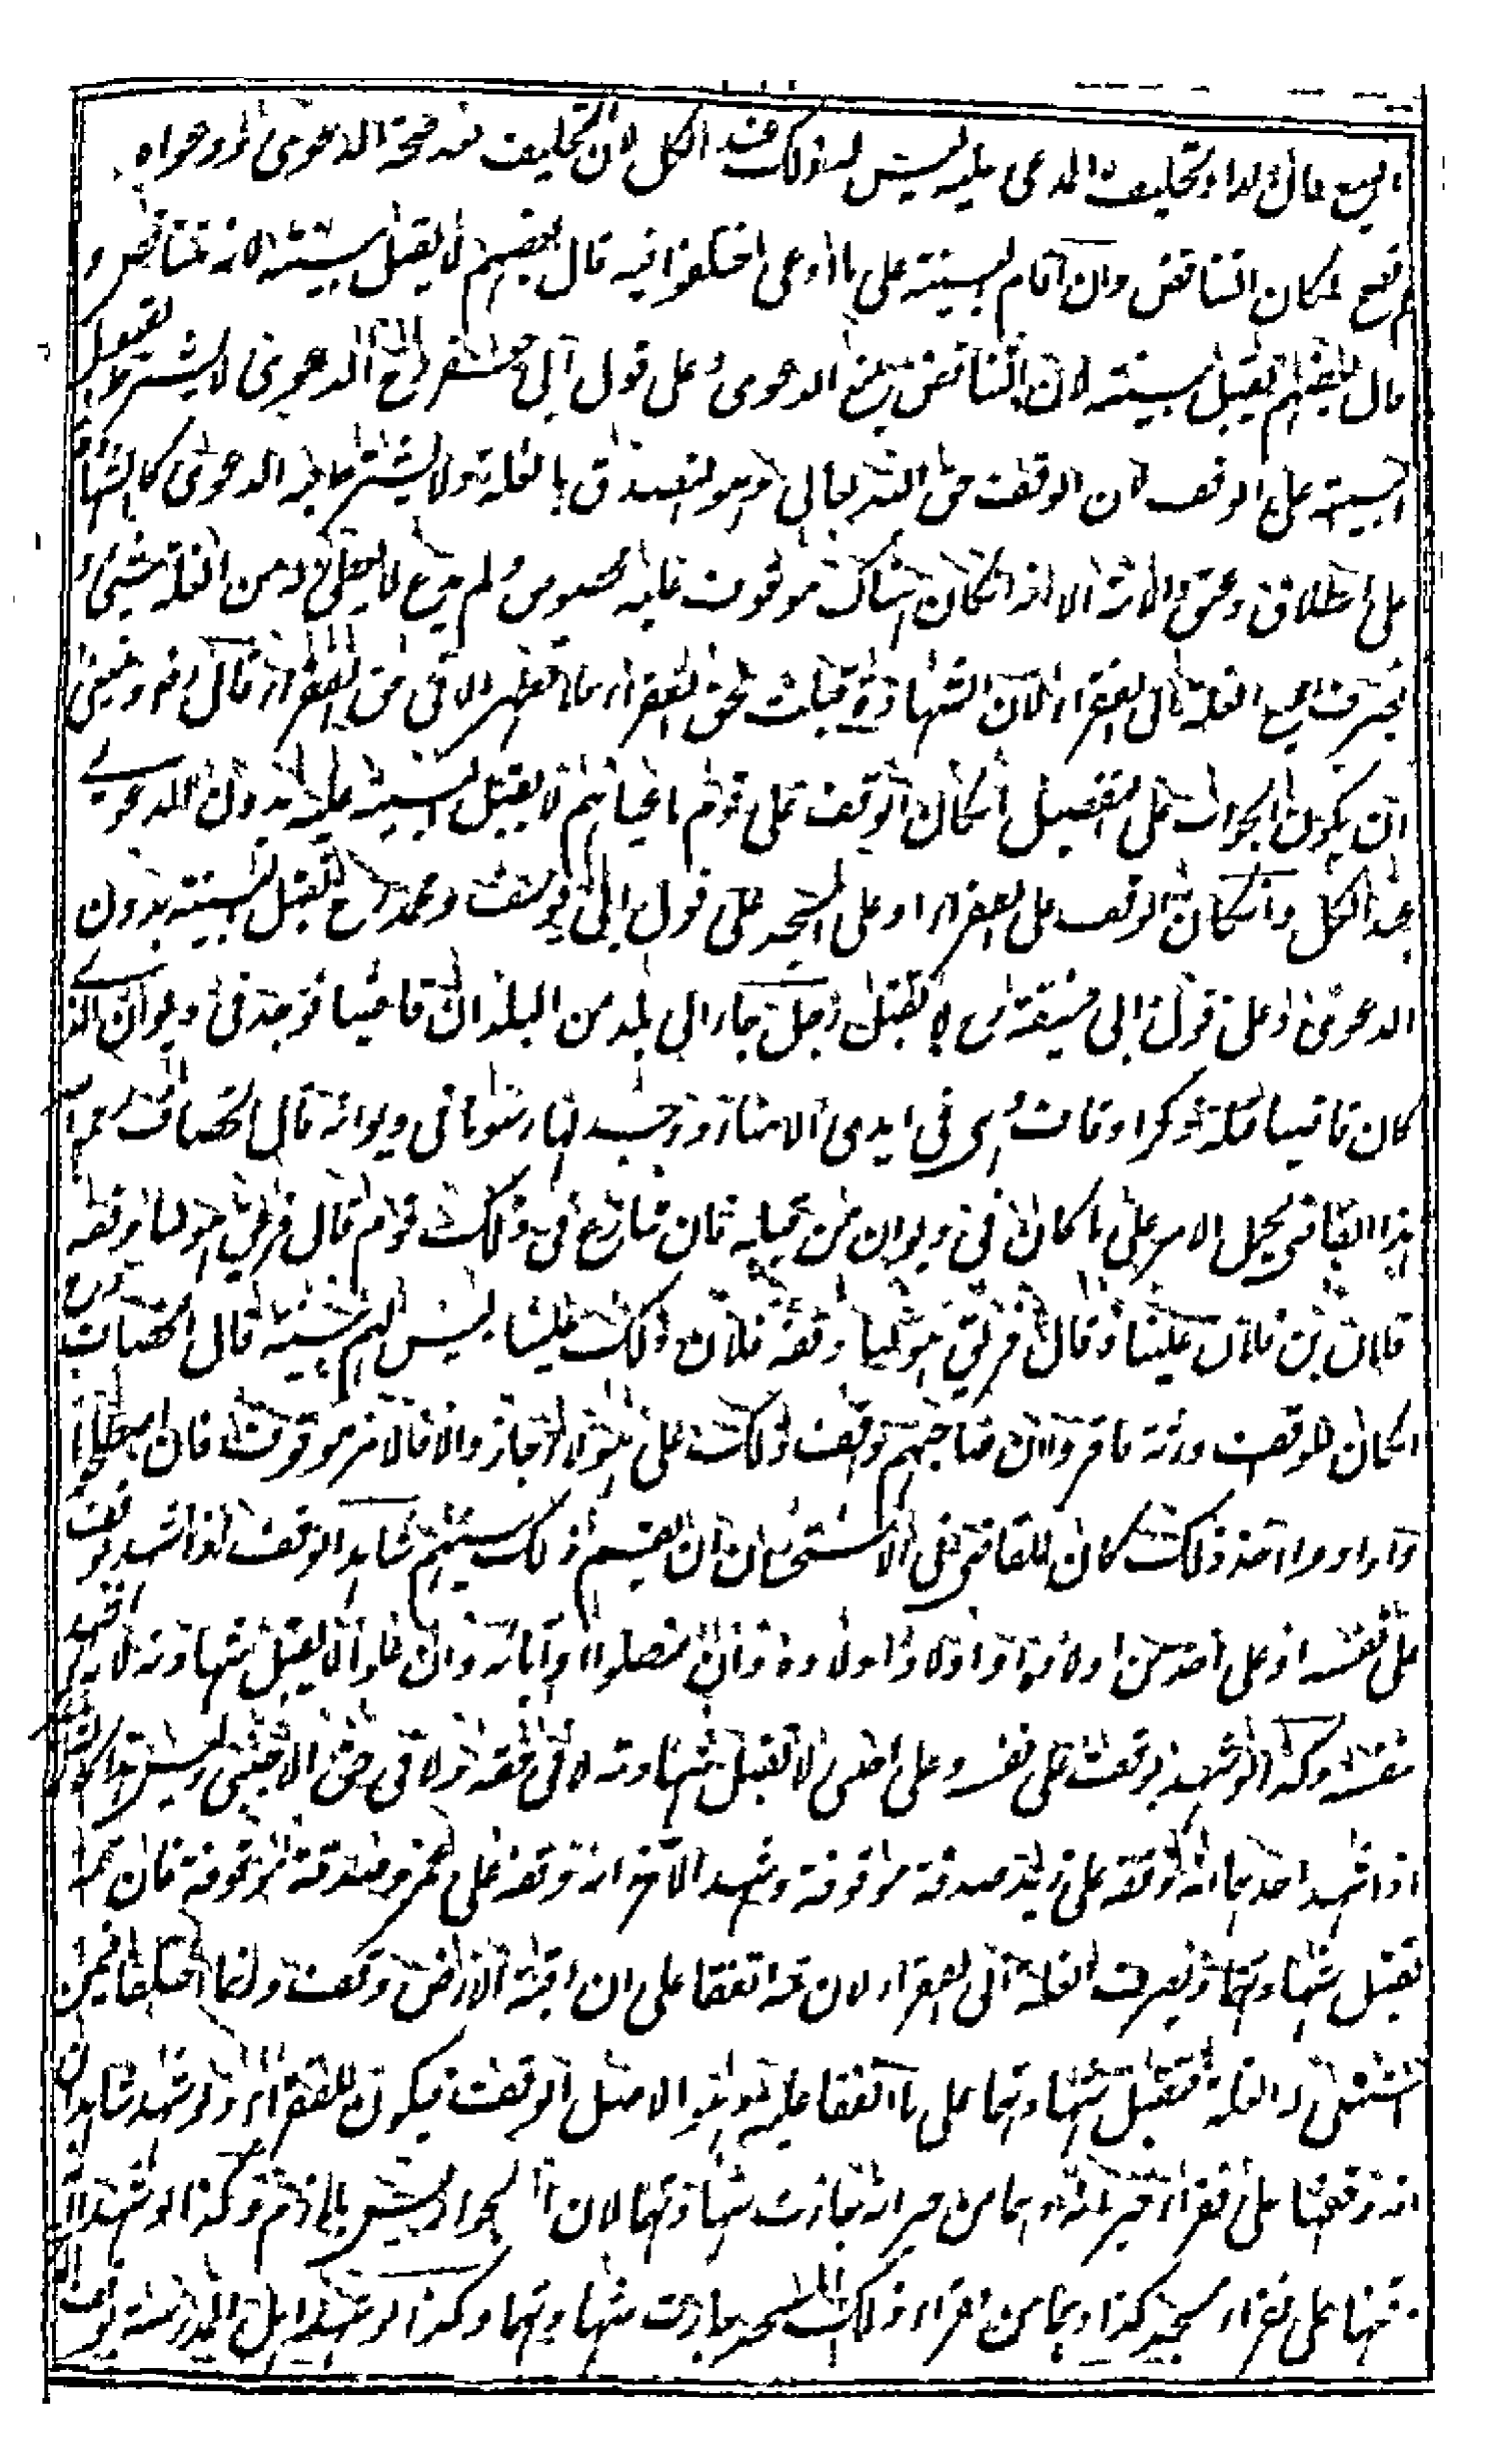 البيع فان اراد تحليف المدعى عليه ليس له ذلك عند الكل لان التحليف بعد صحة الدعوى ودعواه
لم تصح لمكان التناقض وان اقام البينة على ما ادعى اختلفوا فيه قال بعضهم لا يقبل بينته لانه متناقض و
قال بعضهم يقبل بينته لان التناقض يمنع الدعوى وعلى قول ابى الدعوى لا يشترط لقبول
البينة على الوقف لان الوقف حق الله تعالى وهو التصدق بالغلة ولا يشترط فيه الدعوى كالشهادة
على الطلاق وعتق الامة الا اذا كان هناك موقوف عليه مخصوص ولم يدع لا يعطى له من الغلة شيئ و
يصرف جميع الغلة الى الفقراء لان الشهادة قبلت لحق الفقراء فلا تظهر الا فى حق الفقراء قال رض وينبغى
ان يكون الجواب على التفصيل انكان الوقف على قوم باعيانهم لا يقبل البينة عليه بدون الدعوى
عند الكل وانكان الوقف على الفقراء او على المسجد على قول ابى يوسف ومحمد رح تقبل البينة بدون
الدعوى وعلى قول ابى حنيفة رح لا تقبل رجل جاء الى بلد من البلدان قاضيا فوجد فى ديوان الذى
كان قاضيا قبله ذكر اوقاف وهى فى ايدى الامناء ووجد لها رسوما فى ديوانه قال الخصاف رحمه الله
هذا القاضى يحمل الامر على ما كان فى ديوان من قبله فان تنازع فى ذلك قوم قال فريق هو لنا وقفه
فلان بن فلان علينا وقال فريق هو لنا وقفه فلان ذلك علينا ليس لهم بينة قال الخصاف رح
انكان للواقف ورثة فاقروا ان صاحبهم وقف ذلك على هؤلاء جاز والا فالامر موقوف فان اصطلحوا
وارادوا اخذ ذلك كان للقاضى فى الاستحسان ان يقسم ذلك بينهم شاهد الوقف اذا شهد بوقف
على نفسه او على احد من اولاده او اولاد اولاده وان سفلوا او آبائه وان علوا لا يقبل شهادته لانه شهد
لنفسه وكذا لو شهد بوقف على نفسه وعلى اجنبى لا تقبل شهادته لا فى حقه ولا فى حق الاجنبى وليس هذا كما
اذا شهد احدهما انه وقفه على زيد صدقة موقوفة وشهد الآخر انه وقفه على عمرو صدقة موقوفة فان ثمة
تقبل شهادتهما ويصرف الغلة الى الفقراء لان ثمة اتفقا على ان هذه الارض وقف وانما اختلفا فيمن
استثنى له الغلة فتقبل شهادتهما على ما اتفقا عليه وهو اصل الوقف فيكون للفقراء ولو شهد شاهدان
انه وقفها على فقراء جيرانه وهما من جيرانه جازت شهادتهما لان الجوار ليس بلازم وكذا لو شهدا انه
وقفها على فقراء مسجد كذا وهما من فقراء ذلك المسجد جازت شهادتهما وكذا لو شهد اهل المدرسة بوقف